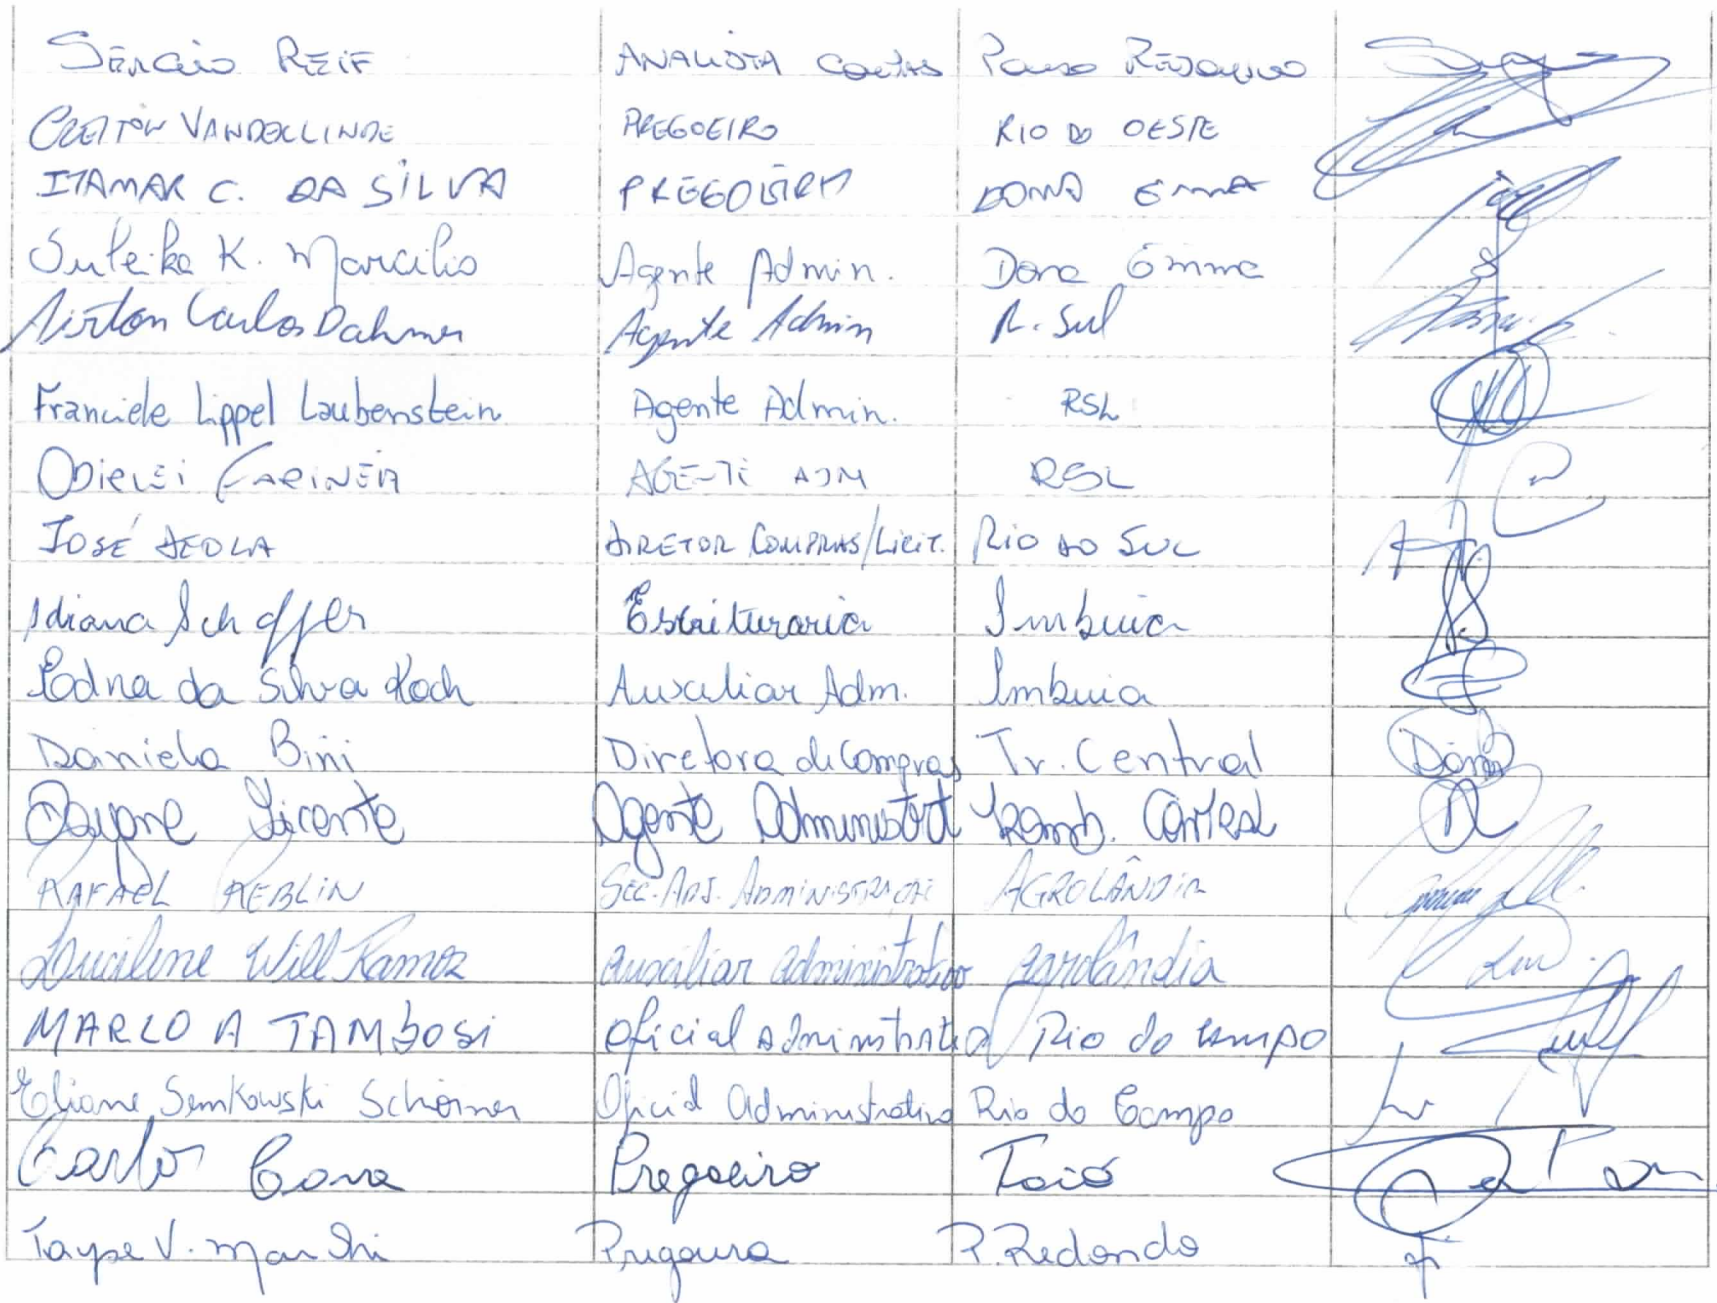 SÉRGIO REIF ANALISTA COMPRAS Pouso REDONDO
CLEITON VANDERLINDE PREGOEIRO RIO DO OESTE
ITAMAR C. DA SILVA PREGOEIRO DONA EMMA
Suleika K. Marcilio Agente Admin. Dona Emma
Airton Carlos Dahmer Agente Admin R. Sul
Franciele Lippel Laubenstein Agente Admin. RSL
ODIRLEI FARINEIA AGENTE ADM RSL
JOSÉ DIRETOR COMPRAS/LICIT. RIO DO SUL
Idiana Scheffer Escrituraria Imbuia
Edna da Silva Koch Auxiliar Adm. Imbuia
Daniela Bini Diretora de Compras Tr. Central
Dayane Vicente Agente Administrat Tromb. Central
RAFAEL REBLIN SEC. ADJ. ADMINISTRAÇÃO AGROLÂNDIA
Lucilene Will Ramos auxiliar administrativo agrolândia
MARLO A TAMBOSI Oficial Administrativo Rio do campo
Eliane Semkowski Schörner Oficial Administrativo Rio do Campo
Carlos Cava Pregoeiro Taió
Tayse V. Marchi Pregoeira P. Redondo